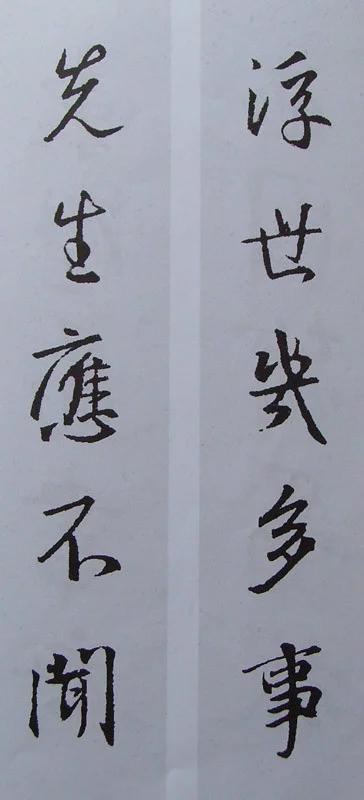 浮世幾多事
先生應不聞